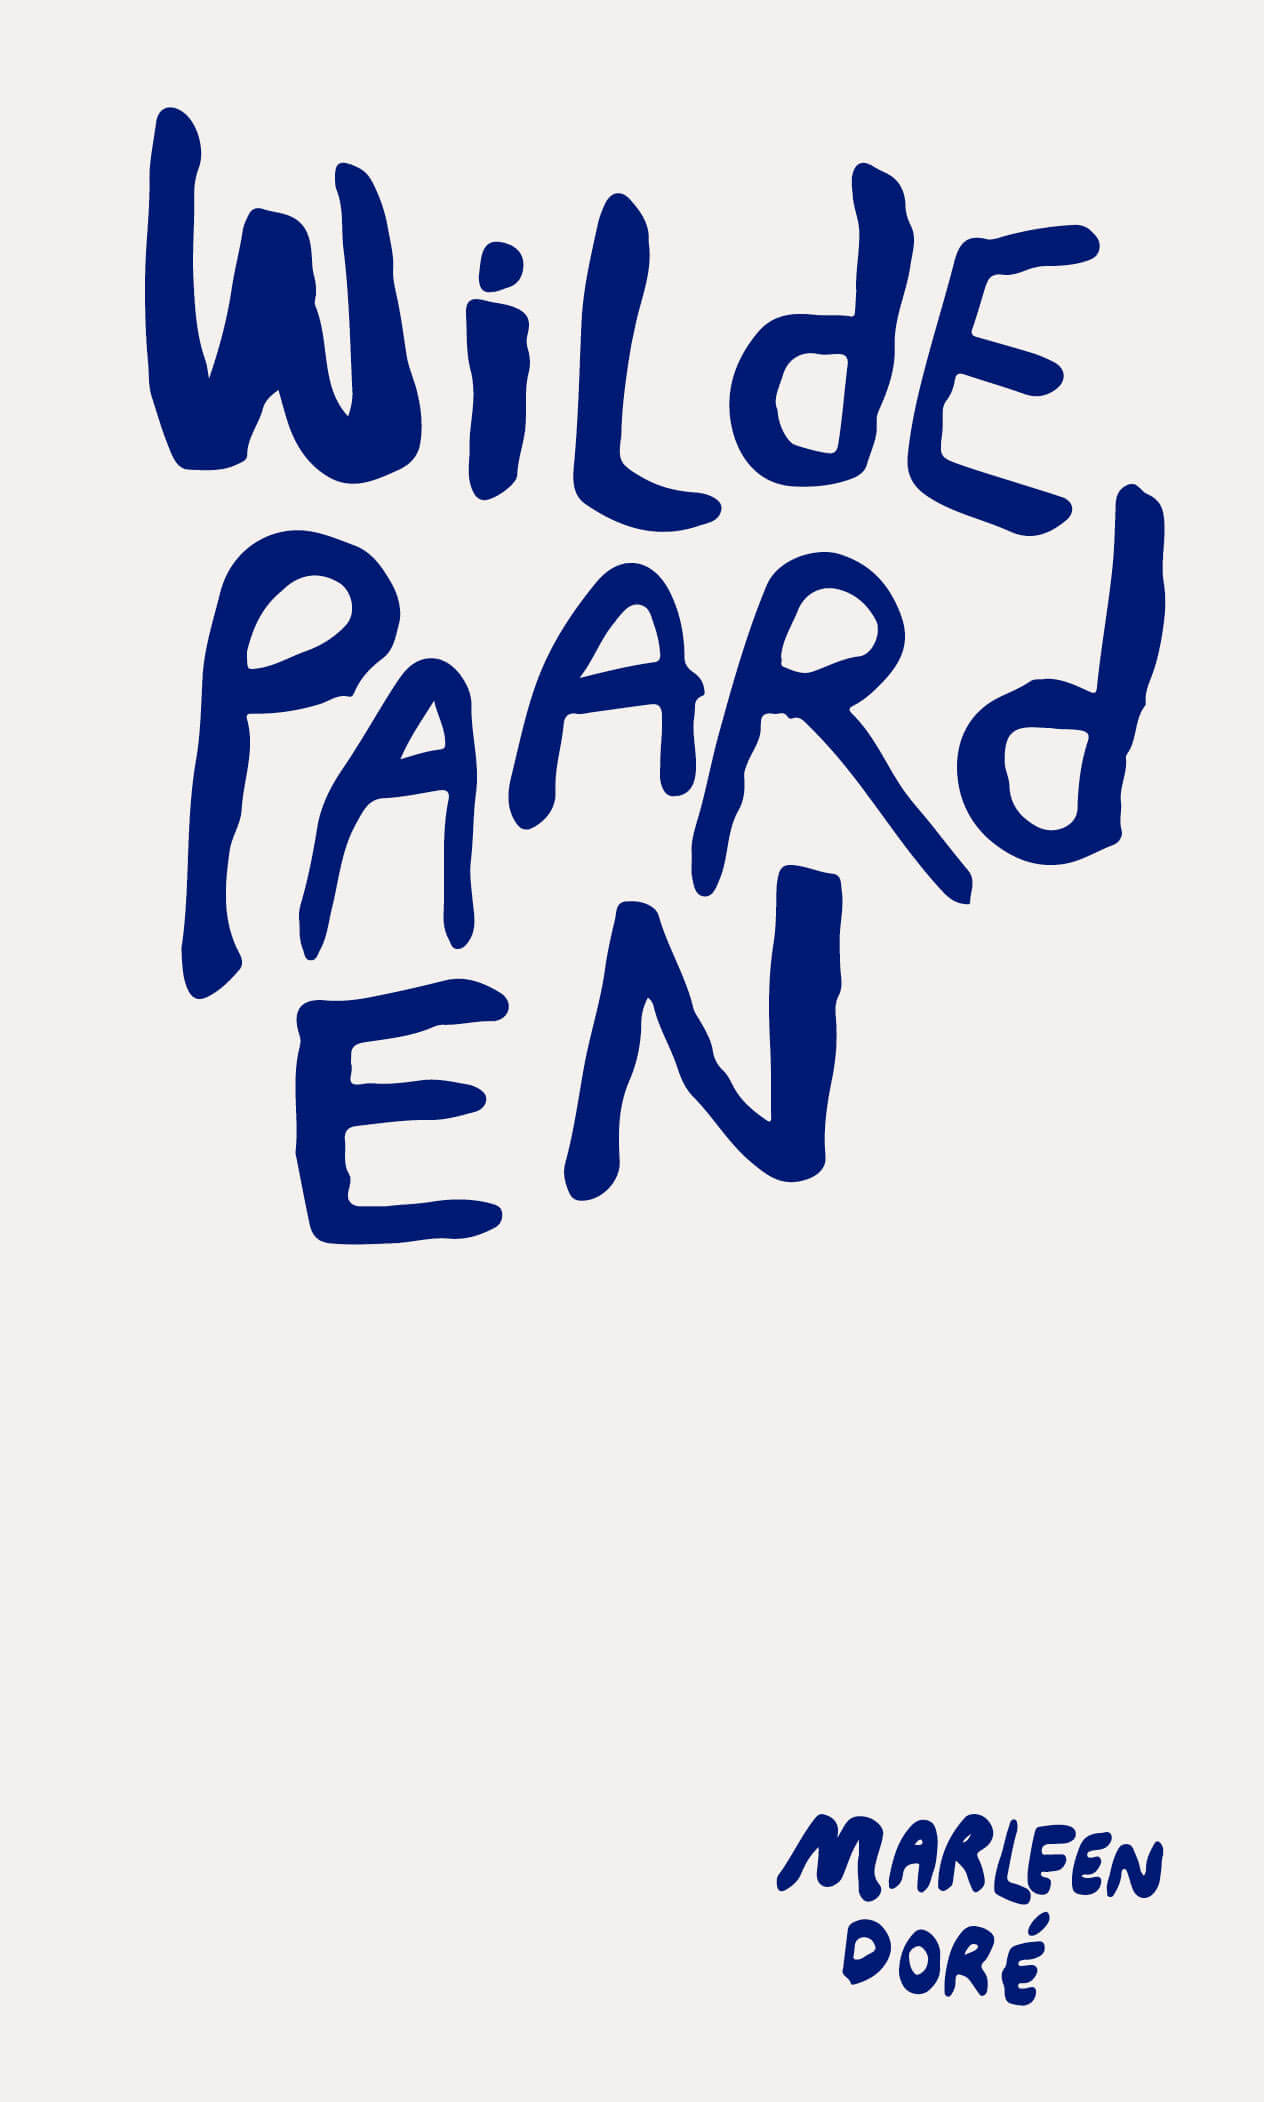 WiLdE
PAARd
EN
MARLEEN
DORÉ